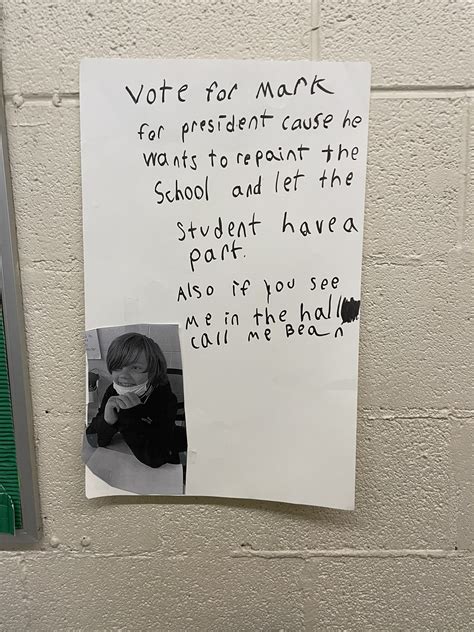 Vote for Mark
for president cause he
wants to repaint the
School and let the
Student have a
part.
Also if you see
me in the hall
call me Bean